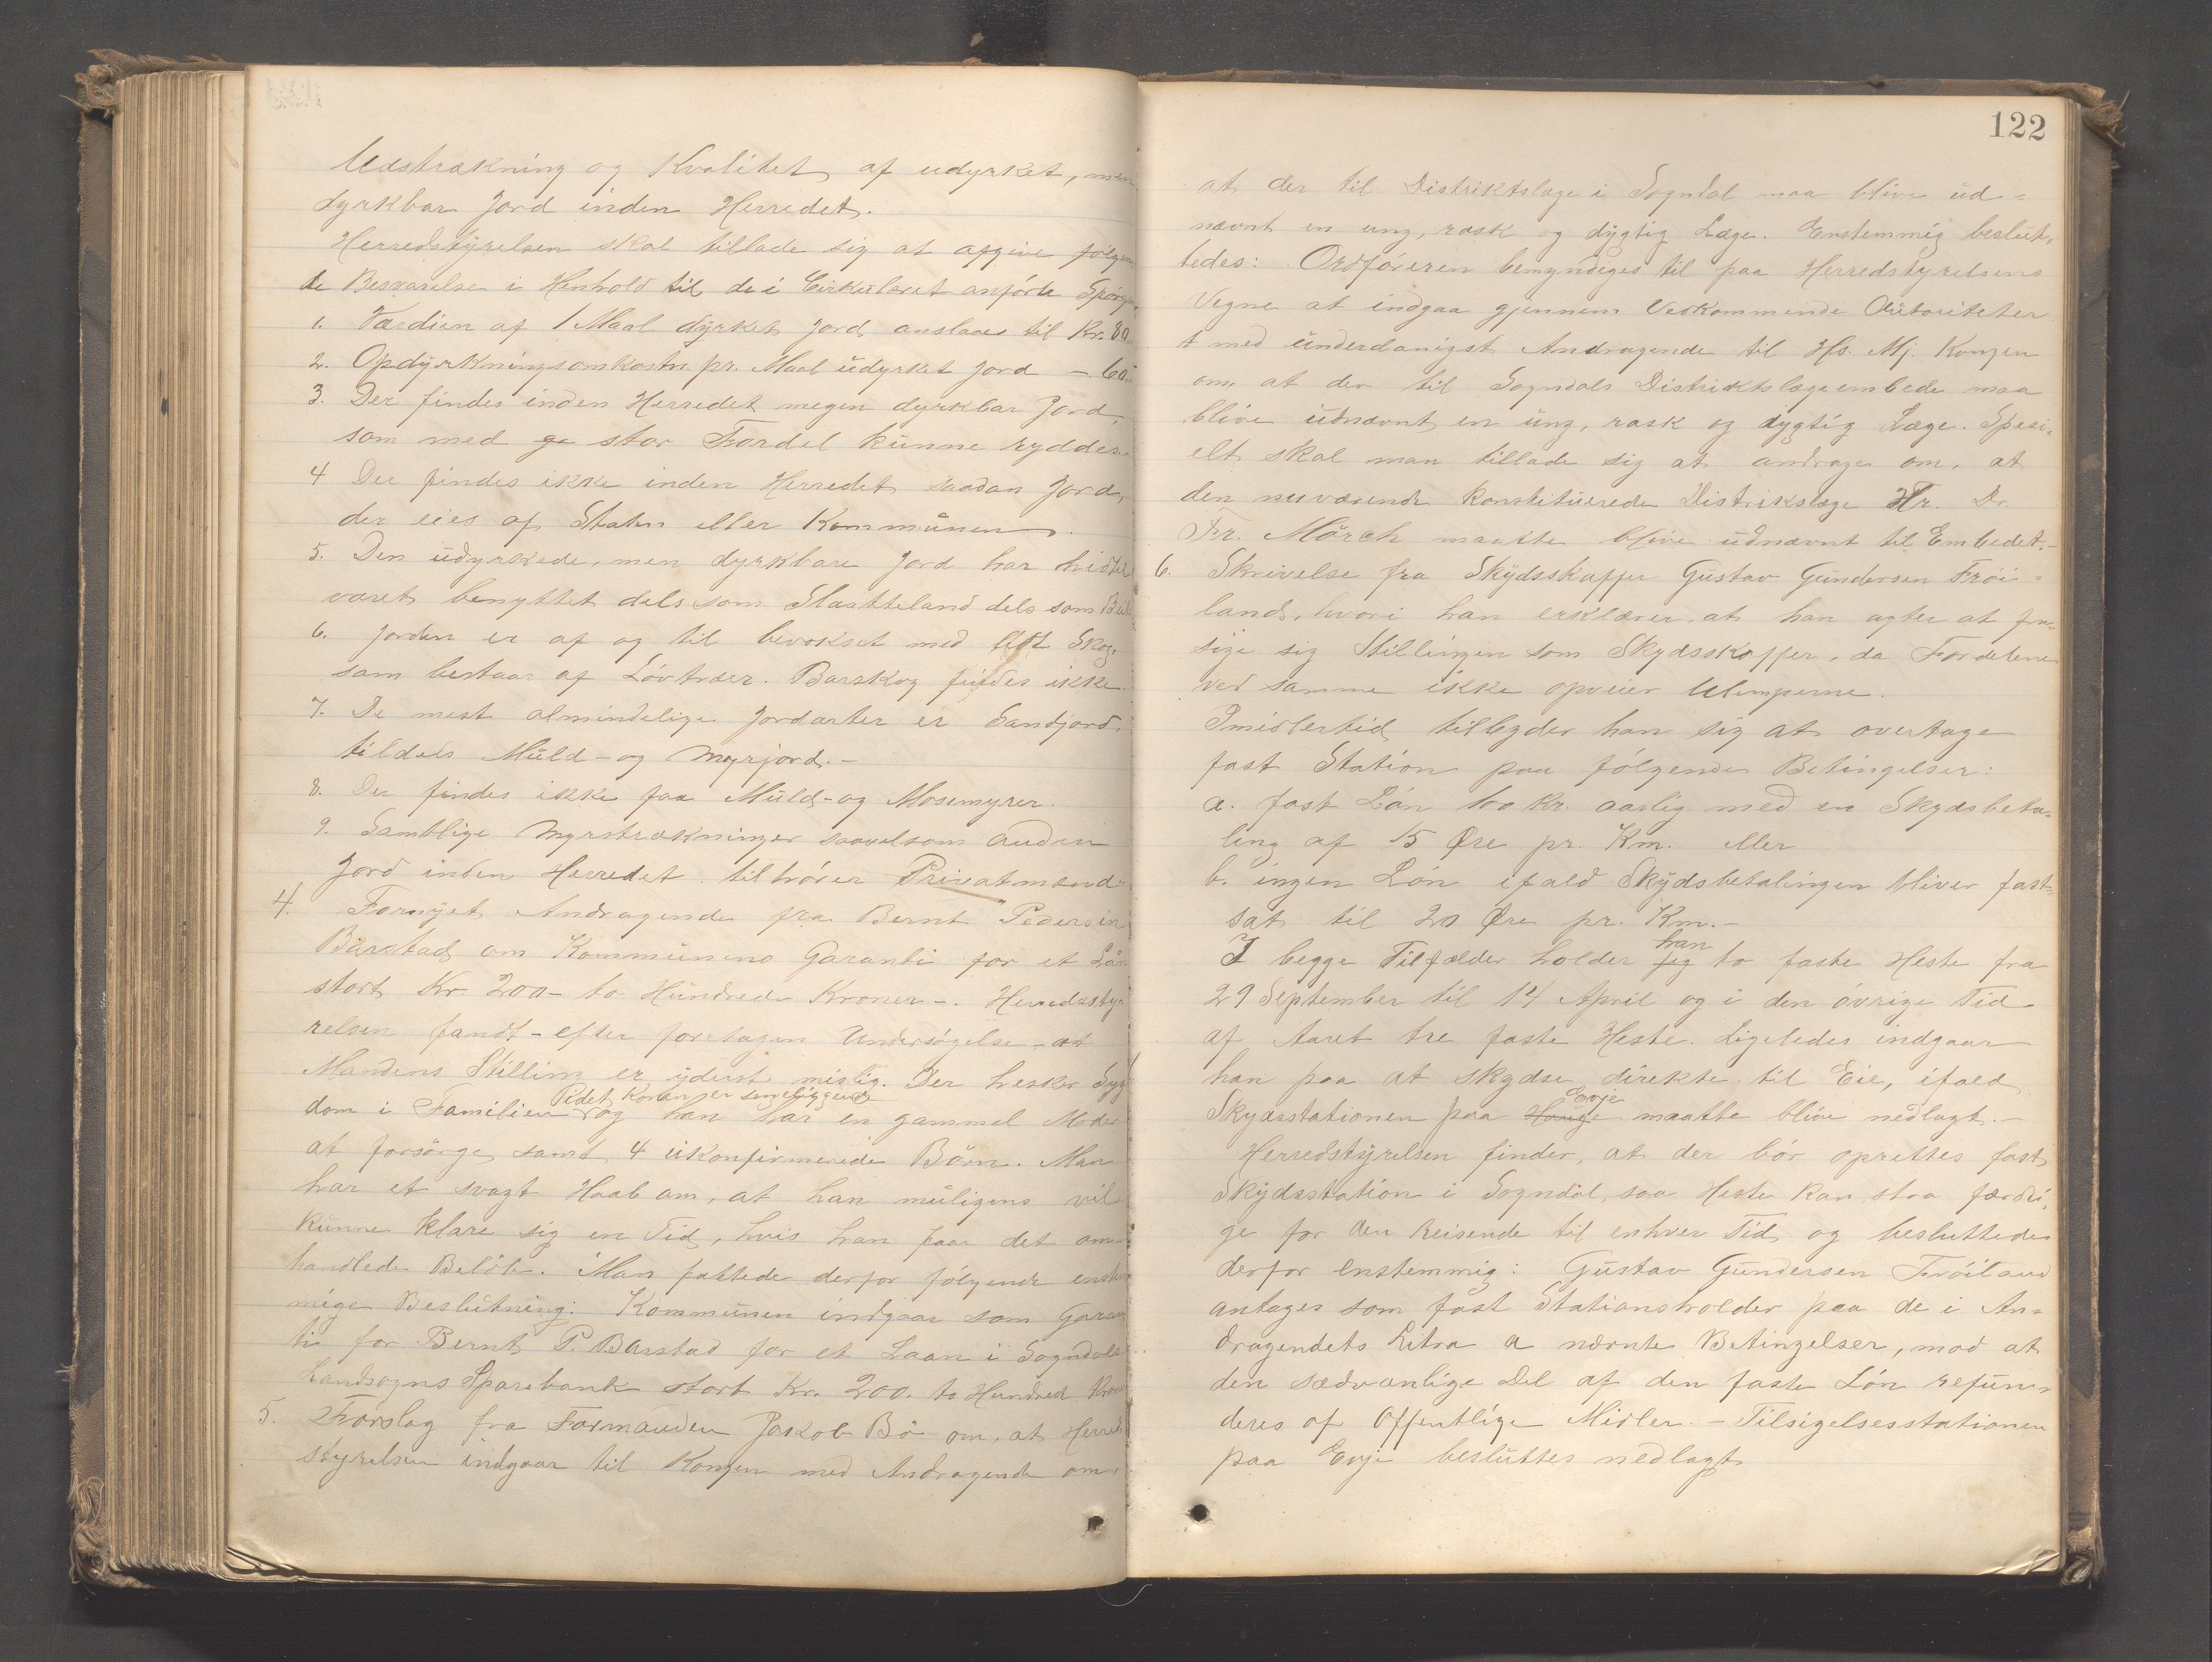 Udstrækning og Kvalitet af udyrket, men
dyrkbar Jord inden Herredet.
Herredstyrelsen skal tillade sig at afgive følgen-
de Besvarelse i Henhold til de i Cirkulæret anførte Spørgs
1. Værdien af 1 Maal dyrket Jord anslaaes til Kr. 80
2. Opdyrkningsomkostn. pr. Maal udyrket Jord - 60.-
3. Der findes inden Herredet megen dyrkbar Jord,
som med ge stor Fordel kunne ryddes.
4 Der findes ikke inden Herredet saadan Jord,
der eies af Staten eller Kommunen.
5. Den udyrkede, men dyrkbare Jord har hidtil
været benyttet dels som Slaatteland dels som Beite
6. Jorden er af og til bevokset med lidt Skog,
som bestaar af Løvtræer. Barskog findes ikke.
7. De mest almindelige Jordarter er Sandjord,
tildels Muld- og Myrjord.-
8. Der findes ikke faa Muld- og Mosemyrer.
9. Samtlige Myrstrækninger saavelsom anden
Jord inden Herredet tilhører Privatmænd.
4. Fornyet Andragende fra Bernt Pedersen
Barstad om Kommunens Garanti for et Laan
stort Kr. 200- to Hundrede Kroner-. Herredssty-
relsen fandt - efter foretagen Undersøgelse - at
Mandens Stilling er yderst mislig. Der hersker Syg
Videt, Konen er sengeliggende
dom i Familien og han har en gammel Moder
at forsørge samt 4 ukonfirmerede Børn. Man
har et svagt Haab om, at han muligens vil
kunne klare sig en Tid, hvis han faar det om-
handlede Beløb. Man fattede derfor følgende enstem
mige Beslutning: Kommunen indgaar som Garan
ti for Bernt P. Barstad for et Laan i Sogndals
Landsogns Sparebank stort Kr. 200. to Hundred Kroner
5. Forslag fra Formanden Jakob Bø om, at Herred
styrelsen indgaar til Kongen med Andragende om,
122
at der til Distriktslæge i Sogndal maa blive ud-
nævnt en ung, rask og dygtig Læge. Enstemmig beslut-
tedes: Ordføreren bemyndiges til paa Herredstyrelsens
Vegne at indgaa gjennem Vedkommende Autoriteter
t med underdanigst Andragende til Hs. Mj. Kongen
om, at der til Sogndals Distriktslægeembede maa
blive udnævnt en ung, rask og dygtig Læge. Spesi-
elt skal man tillade sig at andrage om, at
den nuværende konstituerede Distrikslæge Hr. Dr.
Fr. Mörch maatte blive udnævnt til Embedet.-
6. Skrivelse fra Skydsskaffer Gustav Gundersen Frøi-
land, hvori han erklærer, at han agter at fra-
sige sig Stillingen som Skydsskaffer, da Fordelene
ved samme ikke opveier Ulemperne.
Imidlertid tilbyder han sig at overtage
fast Station paa følgende Betingelser:
a. fast Løn 100 Kr. aarlig med en Skydsbeta-
ling af 15 Øre pr. Km. eller
b. ingen Løn ifald Skydsbetalingen bliver fast-
sat til 20 Øre pr. Km.-
han
I begge Tilfælder holder jeg to faste Heste fra
29 September til 14 April og i den øvrige Tid
af Aaret tre faste Heste. Ligeledes indgaar
han paa at skydse direkte til Eie, ifald
Evje
Skydsstationen paa Hauge maatte blive nedlagt.-
Herredstyrelsen finder, at der bør oprettes fast
Skydsstation i Sogndal, saa Heste kan staa færdi-
ge for den Reisende til enhver Tid og besluttedes
derfor enstemmig: Gustav Gundersen Frøiland
antages som fast Stationsholder paa de i An-
dragendets Litra a nævnte Betingelser, mod at
den sædvanlige Del af den faste Løn refun-
deres af Offentlige Midler.- Tilsigelsesstationen
paa Evje besluttes nedlagt